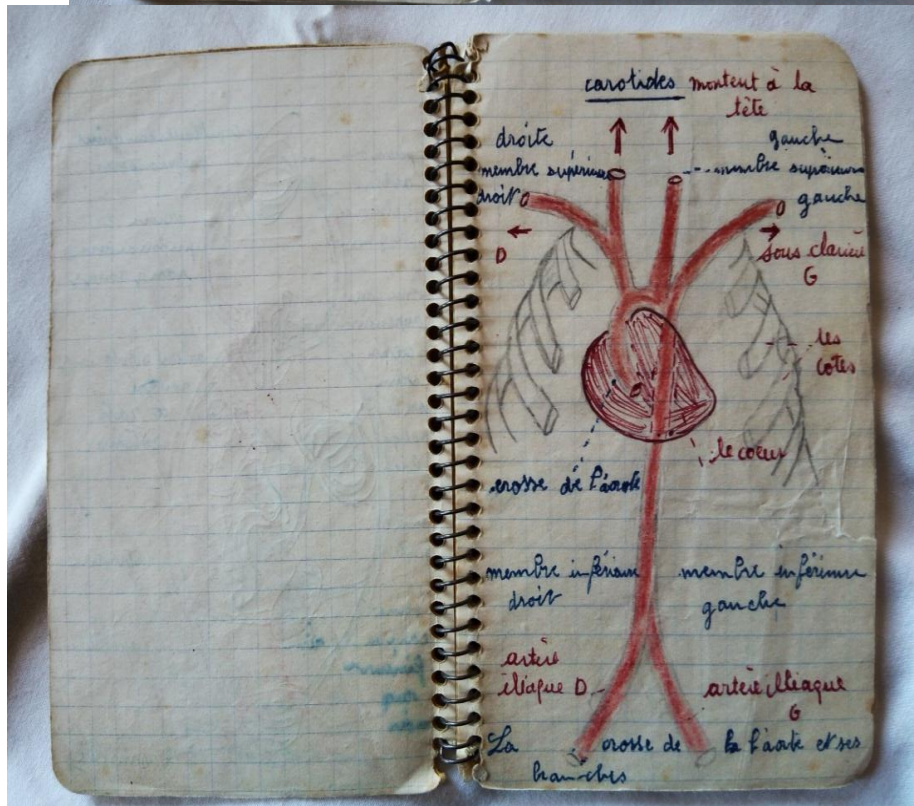 carotides montent à la
tête
droite
gauche
membre supérieur
droit
membre supérieur
gauche
D
sous clavière
G
les
côtes
le coeur
crosse de l'aorte
membre inférieur
droit
membre inférieur
gauche
artère
iliaque D
artère illiaque
G
La crosse de la l'aorte et ses
branches